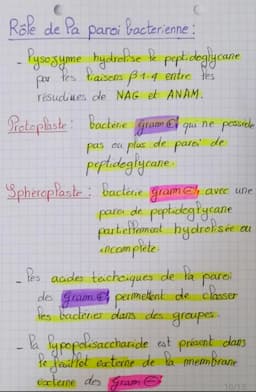 Rôle de la paroi bacterienne :
- Lysozyme hydrolise le peptidoglycane
par les liaisons β 1-4 entre les
résidues de NAG et ANAM.
Protoplaste : bactérie gram ⊕ qui ne possède
pas ou plus de paroi de
peptidoglycane.
Spheroplaste : bactérie gram ⊖, avec une
paroi de peptidoglycane
partiellement hydrolisée ou
incomplète.
- les acides teichoïques de la paroi
des gram ⊕ permettent de classer
les bactéries dans des groupes.
- la lypopolisaccharide est présent dans
le feuillet externe de la membrane
externe des gram ⊖
10/13